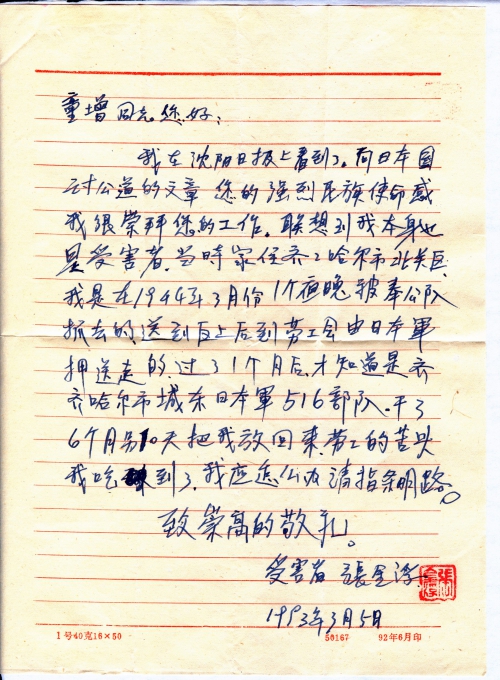 童增同志您好:
我在沈阳日报上看到了。向日本国
讨公道的文章 您的强烈民族使命感
我很崇拜您的工作。联想到我本身也
是受害者。当时家住齐齐哈尔市北关区
我是在1944年3月份1个夜晚被奉公队
抓去的送到区上后到劳工会由日本軍
押送走的.过了1个月后才知道是齐
齐哈尔市城东日本軍516部队.干了
6个月另10天把我放回来.劳工的苦头
我吃到了.我应怎么办请指条明路。
致崇高的敬礼。
受害者 張
1993年3月5日
1号40克16×50 50167 92年6月印